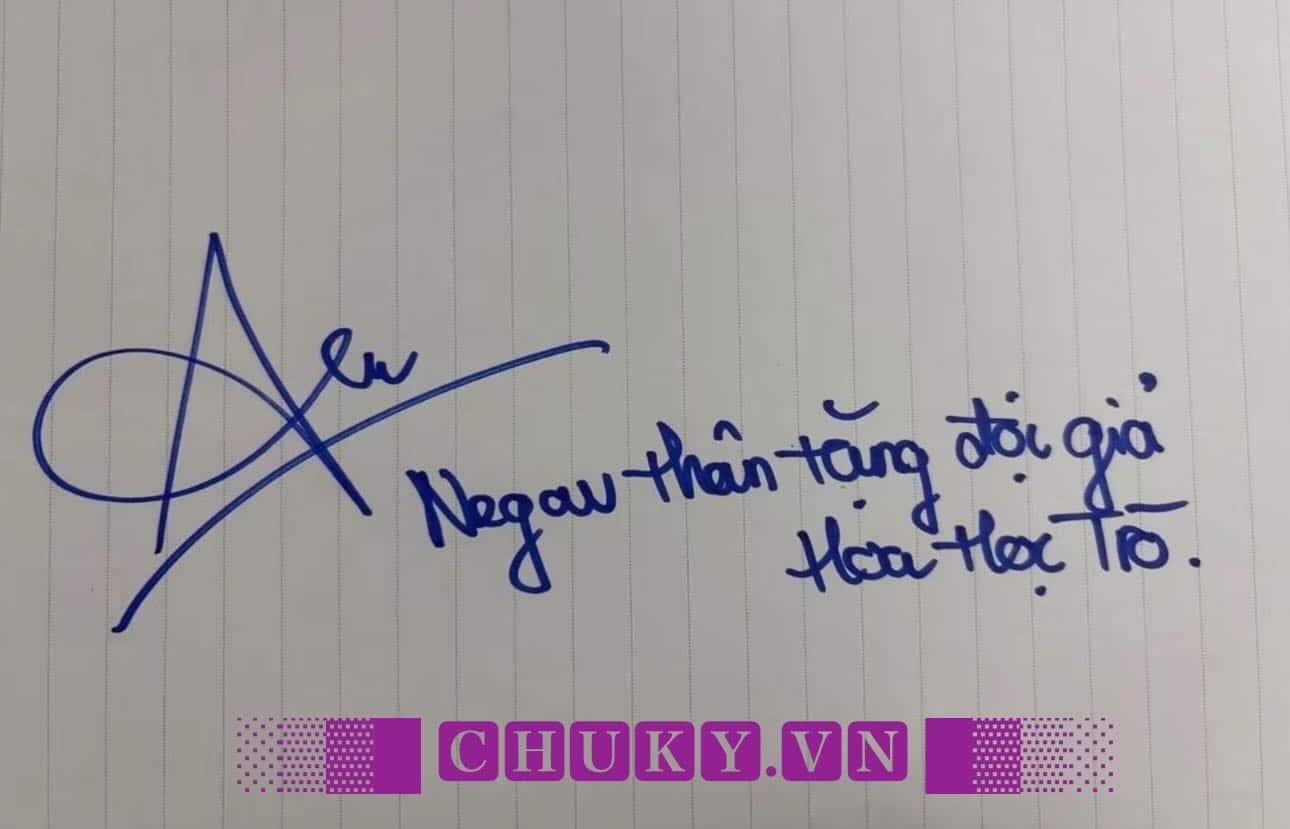 Negav thân tặng độc giả
Hoa Học Trò.
CHUKY.VN